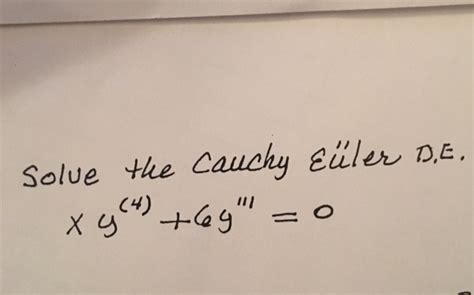 Solve the Cauchy Eüler D.E.
x y^(4) + 6y''' = 0